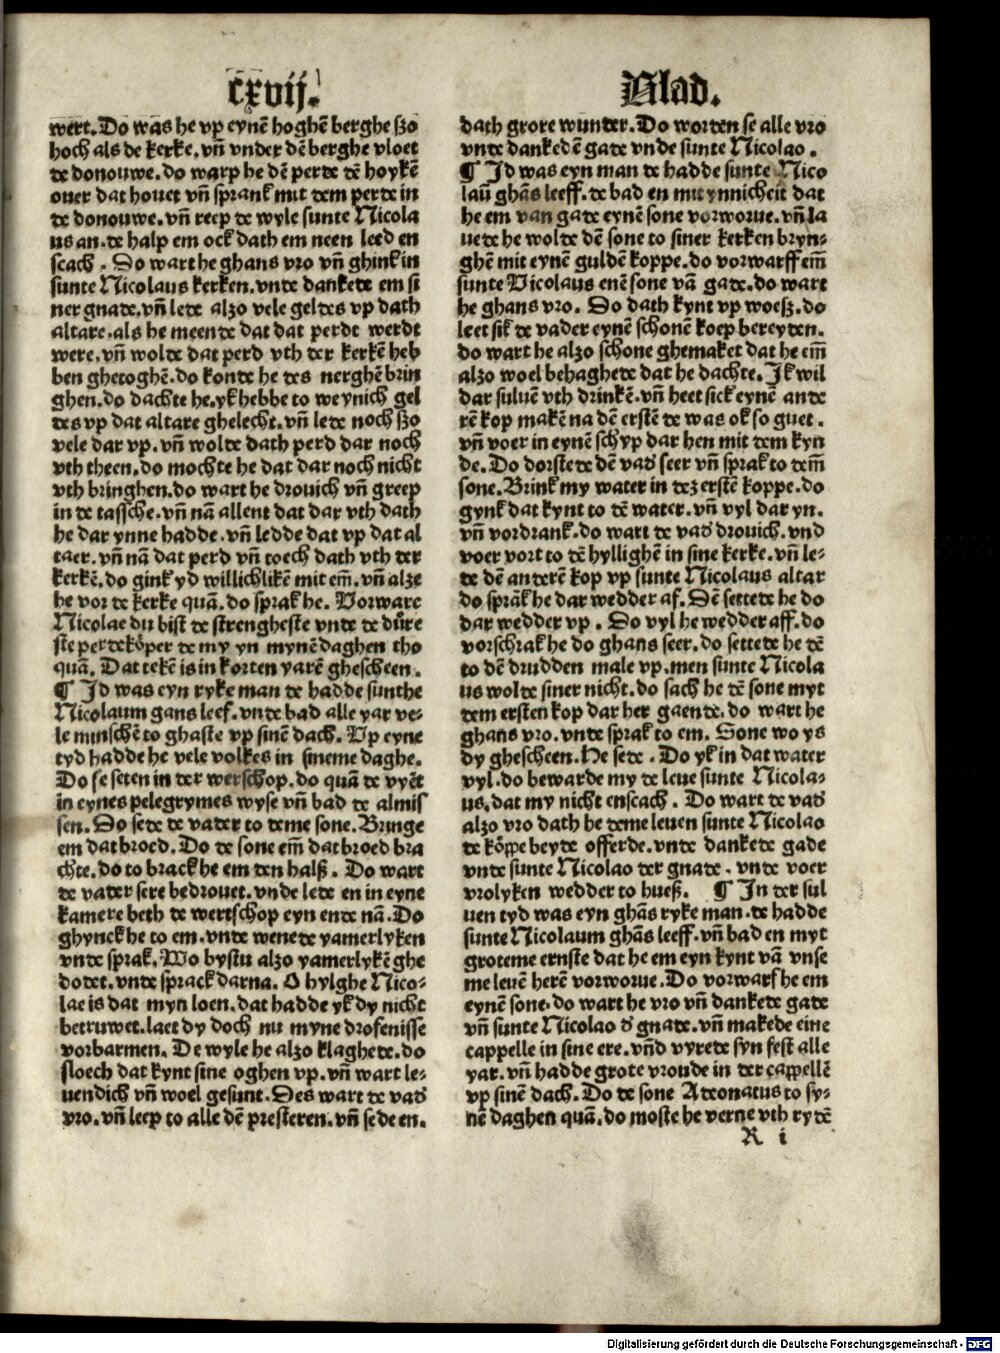 cxvij.
Blad.
wert. Do was he vp eynē hoghē berghe ßo
hoch als de kerke. vn̄ vnder dē berghe vloet
de donouwe. do warp he dē perde dē hoykē
ouer dat houet vn̄ sprank mit dem perde in
de donouwe. vn̄ reep de wyle sunte Nicola
us an. de halp em ock dath em neen leed en
scach. Do wart he ghans vro vn̄ ghink in
sunte Nicolaus kerken. vnde dankede em si
ner gnade. vn̄ lede alzo vele geldes vp dath
altare. als he meende dat dat perdt werdt
were. vn̄ wolde dat perd vth der kerkē heb
ben ghetoghē. do konde he des nerghē brin
ghen. do dachte he. yk hebbe to weynich gel
des vp dat altare ghelecht. vn̄ lede noch ßo
vele dar vp. vn̄ wolde dath perd dar noch
vth theen. do mochte he dat dar noch nicht
vth bringhen. do wart he drouich vn̄ greep
in de tassche. vn̄ nā allent dat dar vth dath
he dar ynne hadde. vn̄ ledde dat vp dat al
taer. vn̄ nā dat perd vn̄ toech dath vth der
kerkē. do gink yd willichlikē mit em̄. vn̄ alze
he vor de kerke quā. do sprak he. Vorware
Nicolae du bist de strengheste vnde de dūre
ste perdekȯper de my yn mynē daghen tho
quā. Dat tekē is in korten yarē ghescheen.
¶ Jd was eyn ryke man de hadde sunthe
Nicolaum gans leef. vnde bad alle yar ve⸗
le minschē to ghaste vp sinē dach. Vp eyne
tyd hadde he vele volkes in sineme daghe.
Do se seten in der werschop. do quā de vyēt
in eynes pelegrymes wyse vn̄ bad de almis
sen. Do sede de vader to deme sone. Bringe
em dat broed. Do de sone em̄ dat broed bra
chte. do to brack he em den halß. Do wart
de vater sere bedrouet. vnde lede en in eyne
kamere beth de wertschop eyn ende nā. Do
ghynck he to em. vnde wenede yamerlyken
vnde sprak. Wo bystu alzo yamerlykē ghe
dodet. vnde sprack darna. O hylghe Nico⸗
lae is dat myn loen. dat hadde yk dy nicht
betruwet. laet dy doch nu myne drofenisse
vorbarmen. De wyle he alzo klaghede. do
sloech dat kynt sine oghen vp. vn̄ wart le⸗
uendich vn̄ woel gesunt. Des wart de vad̄
vro. vn̄ leep to alle dē presteren. vn̄ sede en.
dath grore wunder. Do worden se alle vro
vnde dankedē gade vnde sunte Nicolao.
¶ Jd was eyn man de hadde sunte Nico
lau̅ ghās leeff. de bad en mit ynnicheit dat
he em van gade eynē sone vorworue. vn̄ la
uede he wolde dē sone to siner kerken bryn⸗
ghē mit eynē guldē koppe. do vorwarff em̄
sunte Nicolaus enē sone vā gade. do wart
he ghans vro. Do dath kynt vp woeß. do
leet sik de vader eynē schonē koep bereyden.
do wart he alzo schone ghemaket dat he em̄
alzo woel behaghede dat he dachte. Jk wil
dar suluē vth drinkē. vn̄ heet sick eynē ande
rē kop makē na dē erstē de was ok so guet.
vn̄ voer in eynē schyp dar hen mit dem kyn
de. Do dorstede dē vad̄ seer vn̄ sprak to dem̄
sone. Brink my water in dez erstē koppe. do
gynk dat kynt to dē water. vn̄ vyl dar yn.
vn̄ vordrank. do wart de vad̄ drouich. vnd
voer vort to dē hyllighē in sine kerke. vn̄ le⸗
de dē anderē kop vp sunte Nicolaus altar
do sprāk he dar wedder af. Dē settede he do
dar wedder vp. Do vyl he wedder aff. do
vorschrak he do ghans seer. do settede he dē
to dē drudden male vp. men sunte Nicola
us wolde siner nicht. do sach he dē sone myt
dem ersten kop dar her gaende. do wart he
ghans vro. vnde sprak to em. Sone wo ys
dy ghescheen. He sede. Do yk in dat water
vyl. do bewarde my de leue sunte Nicola⸗
us. dat my nicht enscach. Do wart de vad̄
alzo vro dath he deme leuen sunte Nicolao
de kȯppe beyde offerde. vnde dankede gade
vnde sunte Nicolao der gnade. vnde voer
vrolyken wedder to hueß. ¶ Jn der sul
uen tyd was eyn ghās ryke man. de hadde
sunte Nicolaum ghās leeff. vn̄ bad en myt
groteme ernste dat he em eyn kynt vā vnse
me leuē herē vorworue. Do vorwarf he em
eynē sone. do wart he vro vn̄ dankede gade
vn̄ sunte Nicolao d̄ gnade. vn̄ makede eine
cappelle in sine ere. vn̄d vyrede syn fest alle
yar. vn̄ hadde grote vroude in der cappellē
vp sinē dach. Do de sone Adeonatus to sy⸗
nē daghen quā. do moste he verne vth rydē
R i
Digitalisierung gefördert durch die Deutsche Forschungsgemeinschaft - DFG